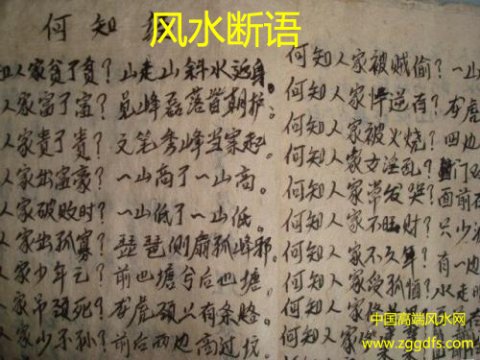 风水断语
何知
何知人家贫了贫？山走山斜水返身。
人家富了富？
人家贵了贵？文笔秀峰当案起。
人家出富豪？一山高了一山高。
人家破败时？一山低了一山低。
人家出孤寡？琵琶侧扇孤峰邪。
人家少年亡？前也塘兮后也塘。
家吊颈死？龙虎颈上有条路。
家少子孙？前后两边高过坟。
何知人家被贼偷？一山
何知人家忤逆有？龙虎
何知人家被火烧？四边
何知人家女淫乱？门
何知人家常发哭？面前
何知人家不旺财？只少
何知人家不久年？有一边
何知人家受孤恓？水走
何知人家
中国高端风水网
www.zggdfs.com